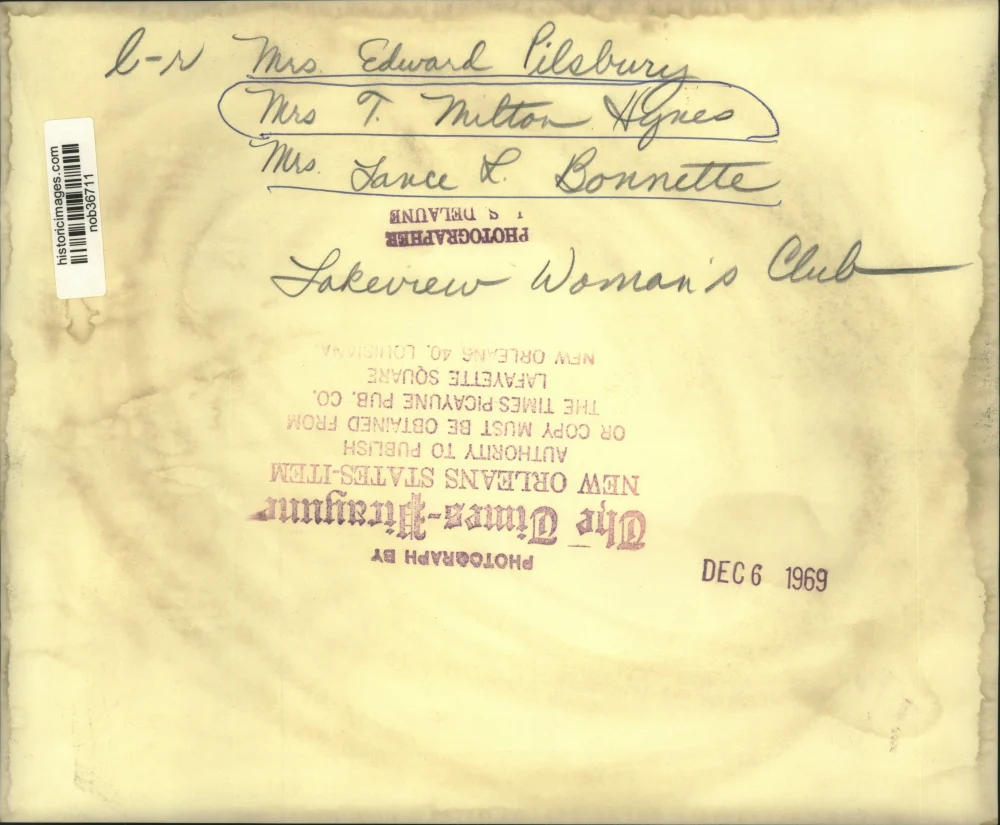 l-r Mrs. Edward Pilsbury
Mrs T. Milton Hynes
Mrs. Lance L. Bonnette
historicimages.com
nob36711
PHOTOGRAPHER
S DELAUNE
Lakeview Woman's Club
PHOTOGRAPH BY
The Times-Picayune
NEW ORLEANS STATES-ITEM
AUTHORITY TO PUBLISH
OR COPY MUST BE OBTAINED FROM
THE TIMES-PICAYUNE PUB. CO.
LAFAYETTE SQUARE
NEW ORLEANS 40, LOUISIANA
DEC 6 1969